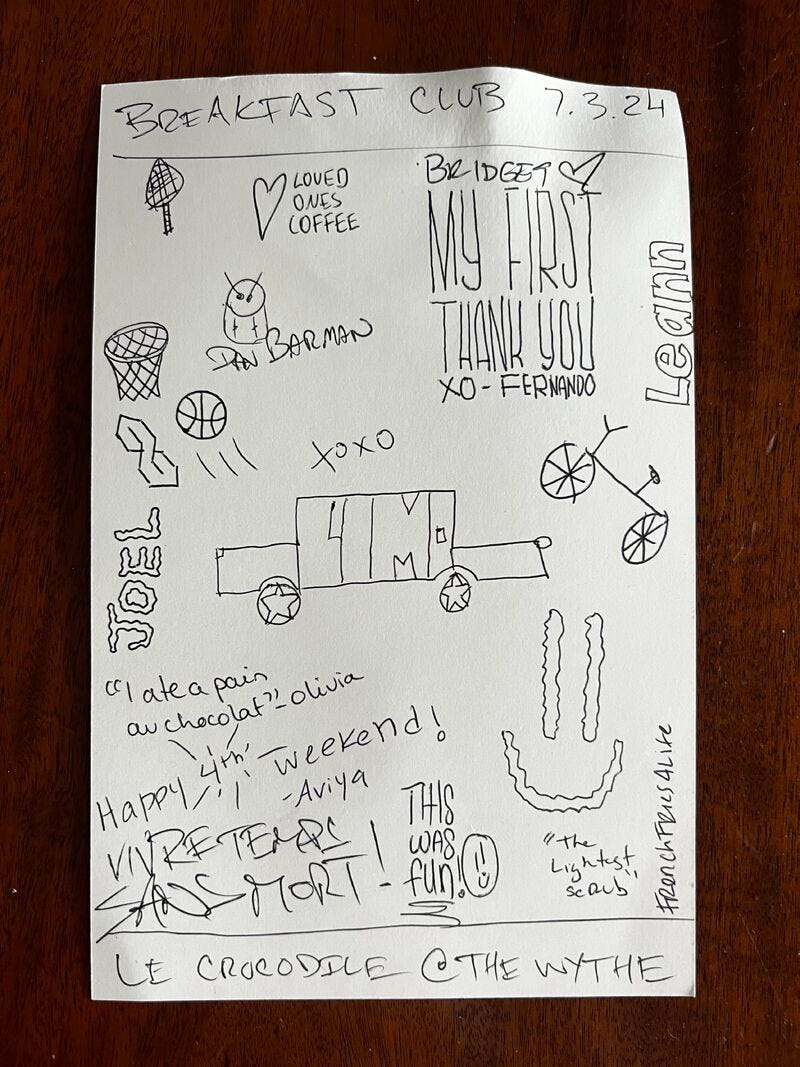 BREAKFAST CLUB 7.3.24
LOVED
ONES
COFFEE
BRIDGET
MY FIRST
THANK YOU
XO - FERNANDO
Leann
DAN BARMAN
XOXO
JOEL
4
"I ate a pain
au chocolat" - olivia
Happy 4th weekend!
- Aviya
VIVRE TEMPS
SANS MORT!
THIS
WAS
fun!
"the
Lightest
scrub"
#FrenchFries4Life
LE CROCODILE @ THE WYTHE